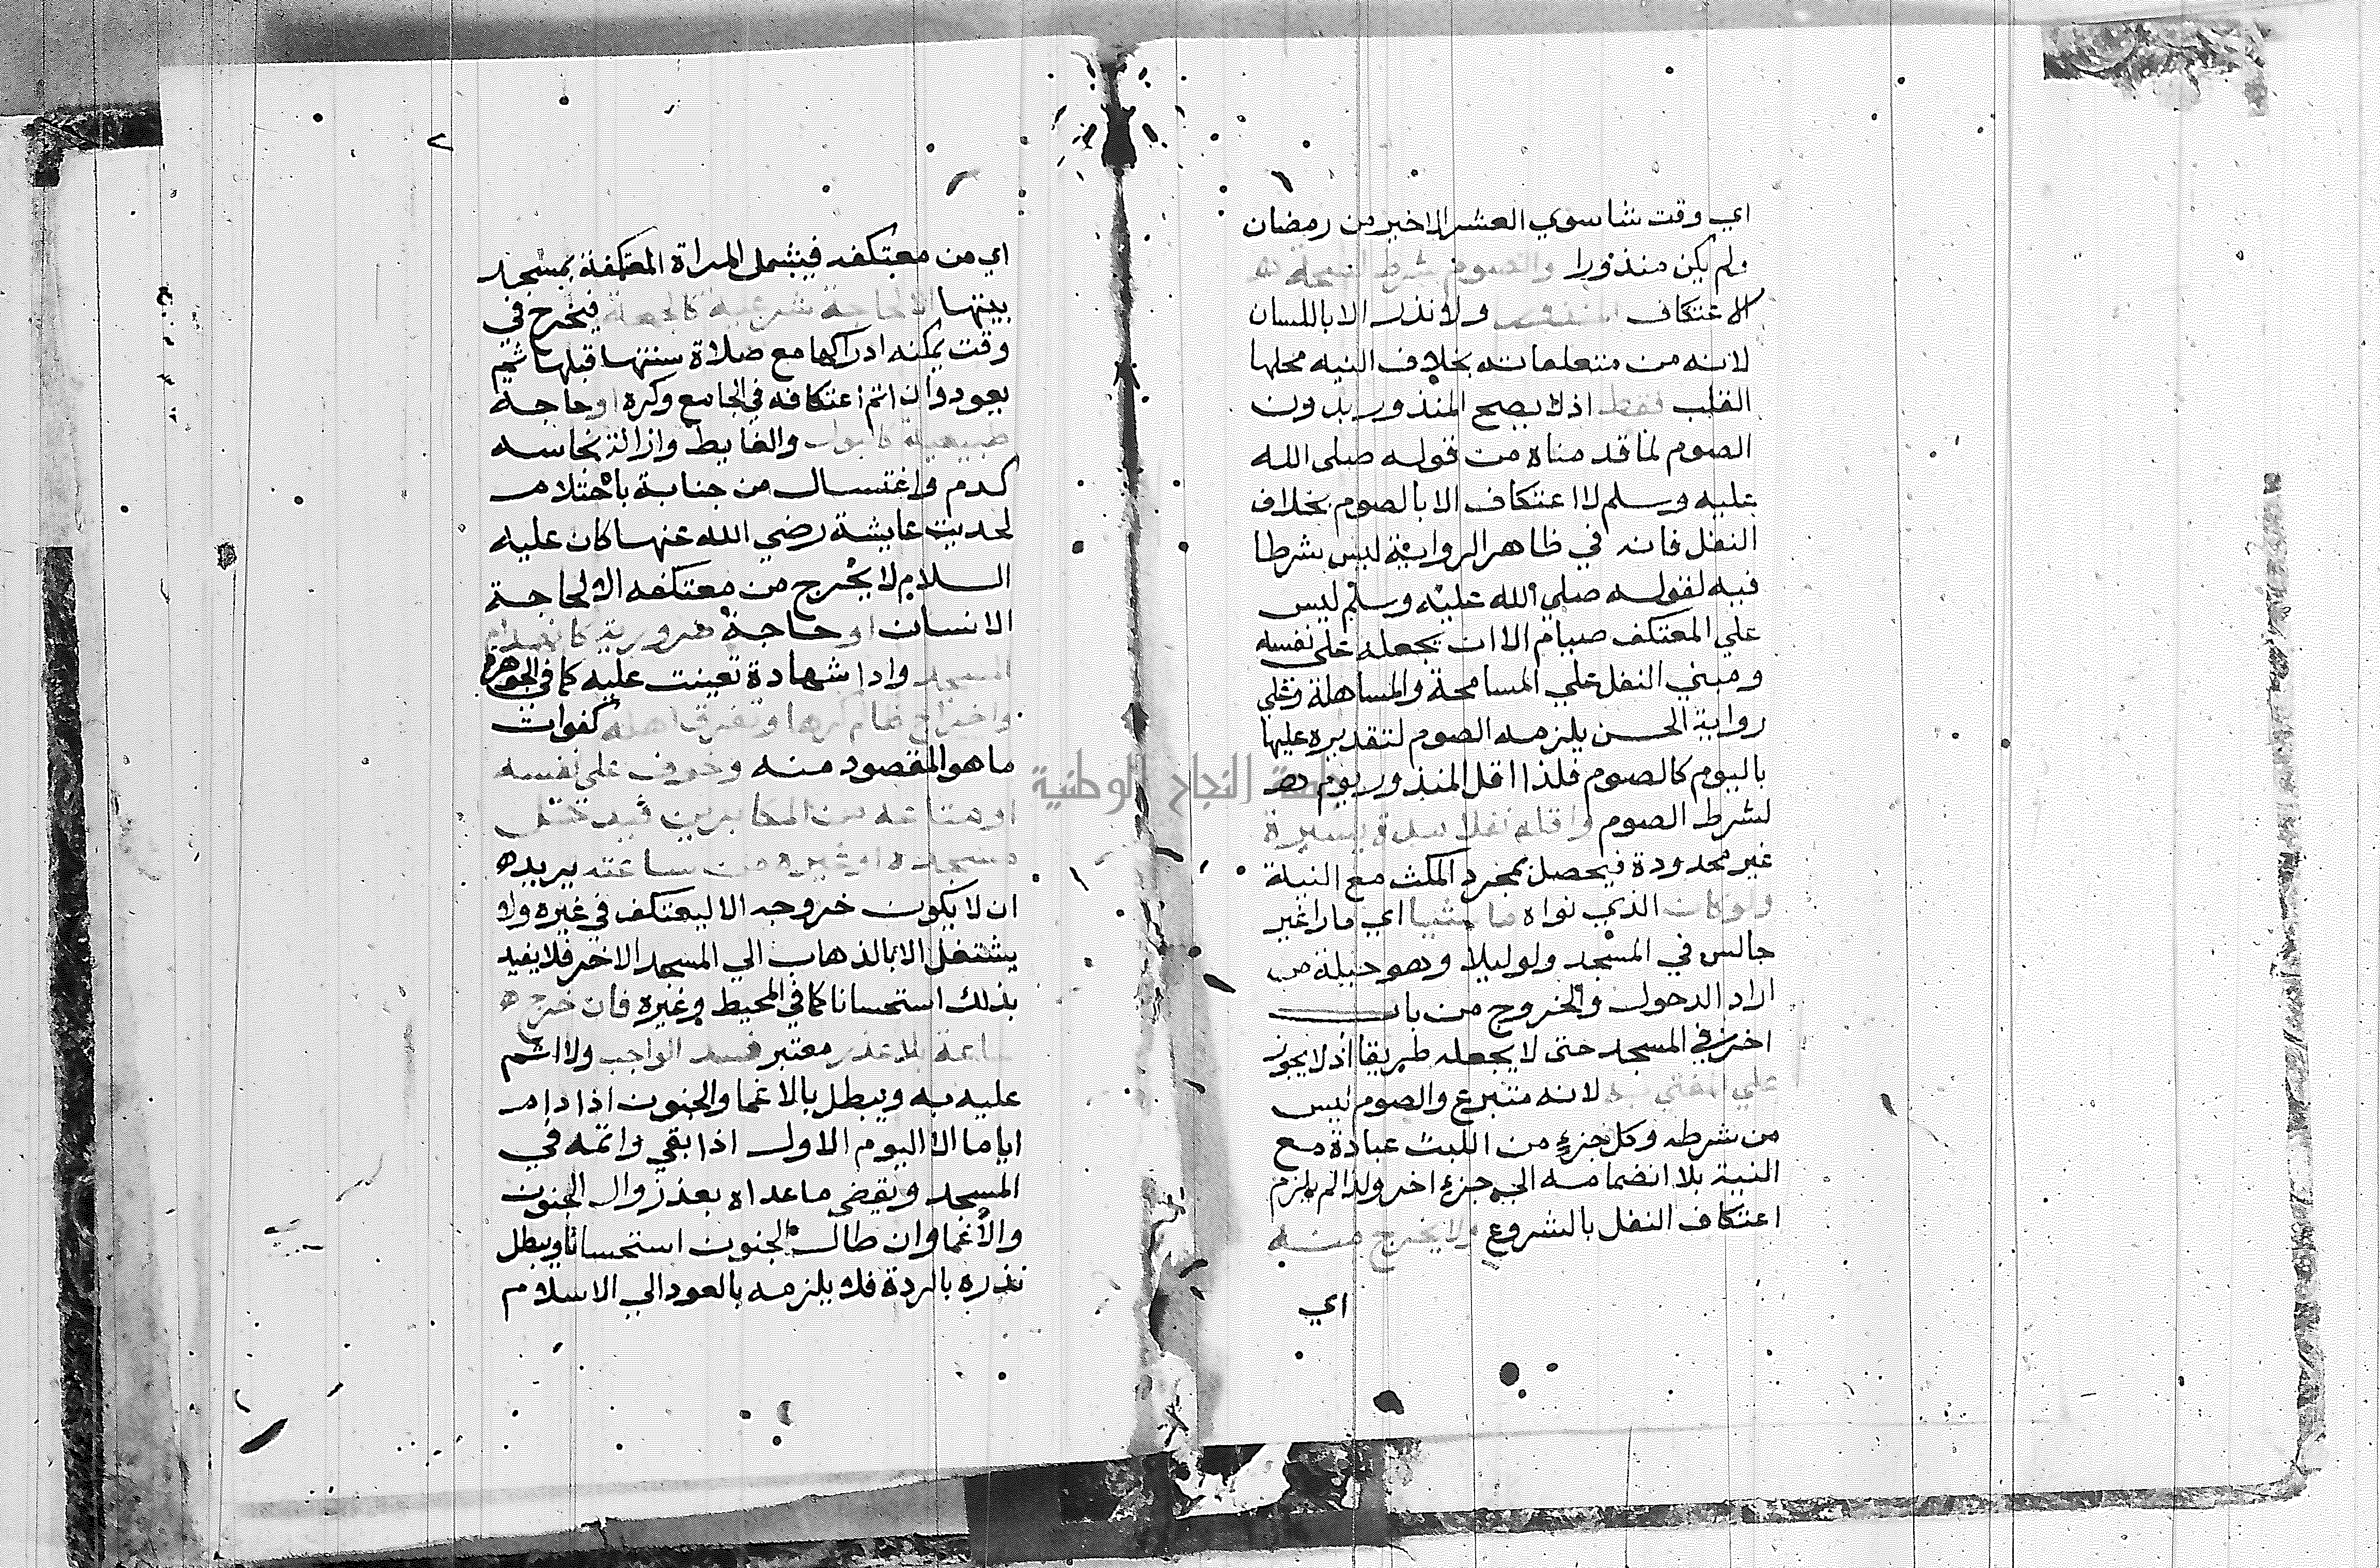 اي وقت شا سوي العشر الاخير من رمضان
ولم يكن منذورا والصوم شرط لصحه
الاعتكاف المنذور ولا نذر الا باللسان
لانه من متعلقاته بخلاف النيه محلها
القلب فقط اذ لا يصح المنذور بدون
الصوم لما قدمناه من قوله صلى الله
عليه وسلم لا اعتكاف الا بالصوم بخلاف
النفل فانه في ظاهر الرواية ليس بشرطا
فيه لقوله صلي الله عليه وسلم ليس
علي المعتكف صيام الا ان يجعله على نفسه
ومبني النفل علي المسامحة والمساهلة وعلي
رواية الحسن يلزمه الصوم لتقديره عليها
باليوم كالصوم فلذا اقل المنذور يوم
لشرط الصوم واقله نفلا مدة يسيرة
غير محدودة فيحصل بمجرد المكث مع النية
ولو كان الذي نواه ماشيا اي مارا غير
جالس في المسجد ولو ليلا وهو حيلة من
اراد الدخول والخروج من باب
اخر في المسجد حتى لا يجعله طريقا اذ لا يجوز
علي المفتي به لانه متبرع والصوم ليس
من شرطه وكل جزء من اللبث عبادة مع
النية بلا انضمامه الي جزء اخر ولذا لم يلزم
اعتكاف النفل بالشروع ولا يخرج منه
اي
٢
اي من معتكفه فيشمل المراة المعتكفة بمسجد
بيتها الا لحاجة شرعية كالجمعة فيخرج في
وقت يمكنه ادراكها مع صلاة سنتها قبلها ثم
يعود وان اتم اعتكافه في الجامع وكره او حاجة
طبيعية كالبول والغايط وازالة نجاسه
كدم واغتسال من جنابة باحتلام
لحديث عايشة رضي الله عنها كان عليه
السلام لا يخرج من معتكفه الا لحاجة
الانسان او حاجة ضرورية كانهدام
المسجد وادا شهادة تعينت عليه كما في الجوهرة
واخراج ظالم كرها وتفرق اهله كفوات
ما هو المقصود منه وخوف علي نفسه
او متاعه من المكابرين فيدخل
مسجدا غيره من ساعته يريد
ان لا يكون خروجه الا ليعتكف في غيره ولا
يشتغل الا بالذهاب الي المسجد الاخر فلا يفيد
بذلك استحسانا كما في المحيط وغيره فان خرج
ساعة بلا عذر معتبر فسد الواجب ولا اثم
عليه به ويبطل بالاغما والجنون اذا دام
اياما الا اليوم الاول اذا بقي واتمه في
المسجد ويقضي ما عداه بعد زوال الجنون
والاغما وان طال الجنون استحسانا ويبطل
نذره بالردة فلا يلزمه بالعود الي الاسلام
جامعة النجاح الوطنية